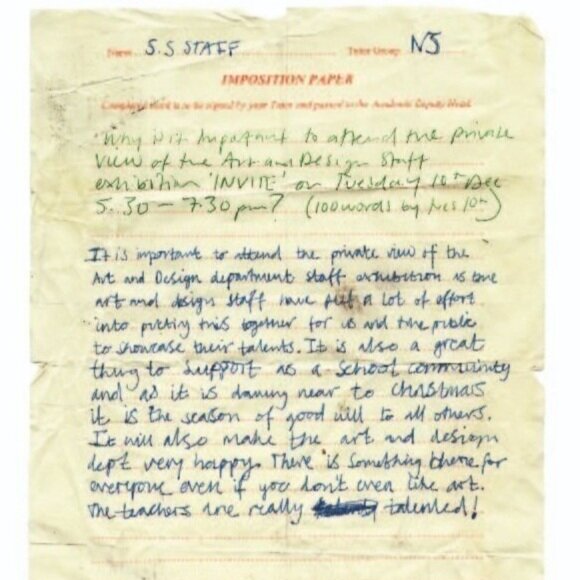 Name S.S STAFF Tutor Group NJ
IMPOSITION PAPER
Completed work is to be signed by your Tutor and passed to the Academic Deputy Head.
Why is it important to attend the private
view of the Art and Design Staff
exhibition 'INVITE' on Tuesday 10th Dec
5.30 - 7.30 pm? (100 words by Tues 10th)
It is important to attend the private view of the
Art and Design department staff exhibition as the
art and design staff have put a lot of effort
into putting this together for us and the public
to showcase their talents. It is also a great
thing to support as a school community
and as it is drawing near to Christmas
it is the season of good will to all others.
It will also make the art and design
dept very happy. There is something there for
everyone even if you don't even like art.
The teachers are really talented!